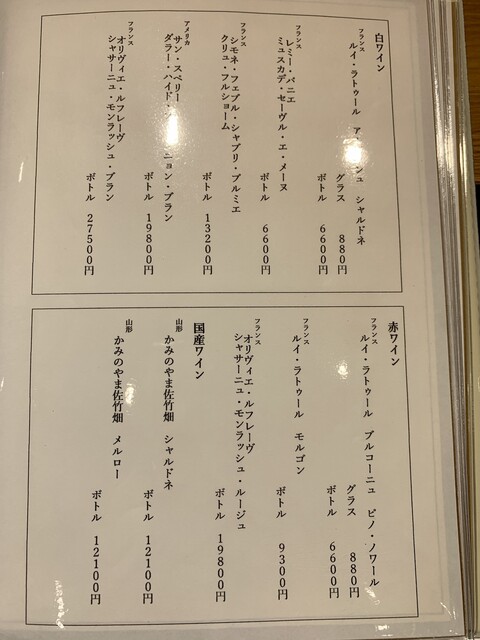 白ワイン
フランス
ルイ・ラトゥール シャルドネ
グラス 880円
ボトル 6600円
フランス
レミー・パニエ
ミュスカデ・セーヴル・エ・メーヌ
ボトル 6600円
フランス
シモネ・フェブル・シャブリ・プルミエ
クリュ・フルショーム
ボトル 13200円
アメリカ
サン・スペリー
ダラー・ハイド・ ニョン・ブラン
ボトル 19800円
フランス
オリヴィエ・ルフレーヴ
シャサーニュ・モンラッシュ・ブラン
ボトル 27500円
赤ワイン
フランス
ルイ・ラトゥール ブルゴーニュ ピノ・ノワール
グラス 880円
ボトル 6600円
フランス
ルイ・ラトゥール モルゴン
ボトル 9300円
フランス
オリヴィエ・ルフレーヴ
シャサーニュ・モンラッシュ・ルージュ
ボトル 19800円
国産ワイン
山形
かみのやま佐竹畑 シャルドネ
ボトル 12100円
山形
かみのやま佐竹畑 メルロー
ボトル 12100円